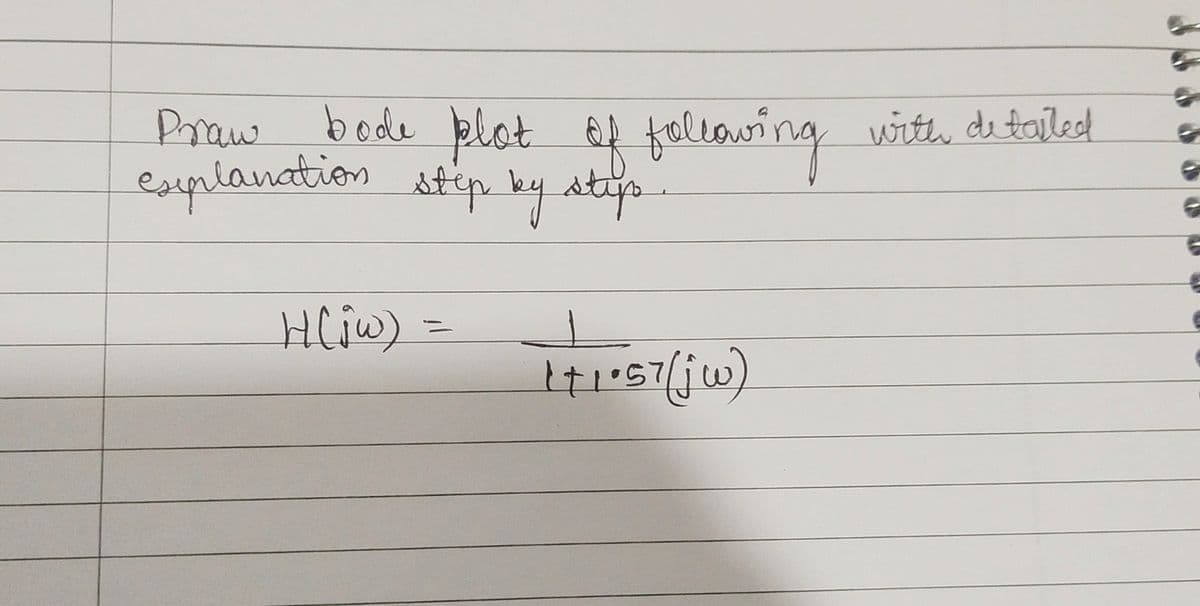 Draw bode plot of following with detailed
explanation step by step.
H(jω) = 1
1+1.57(jω)